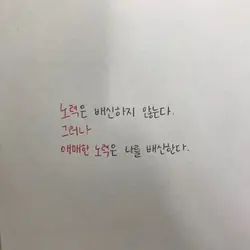 노력은 배신하지 않는다.
그러나
애매한 노력은 나를 배신한다.